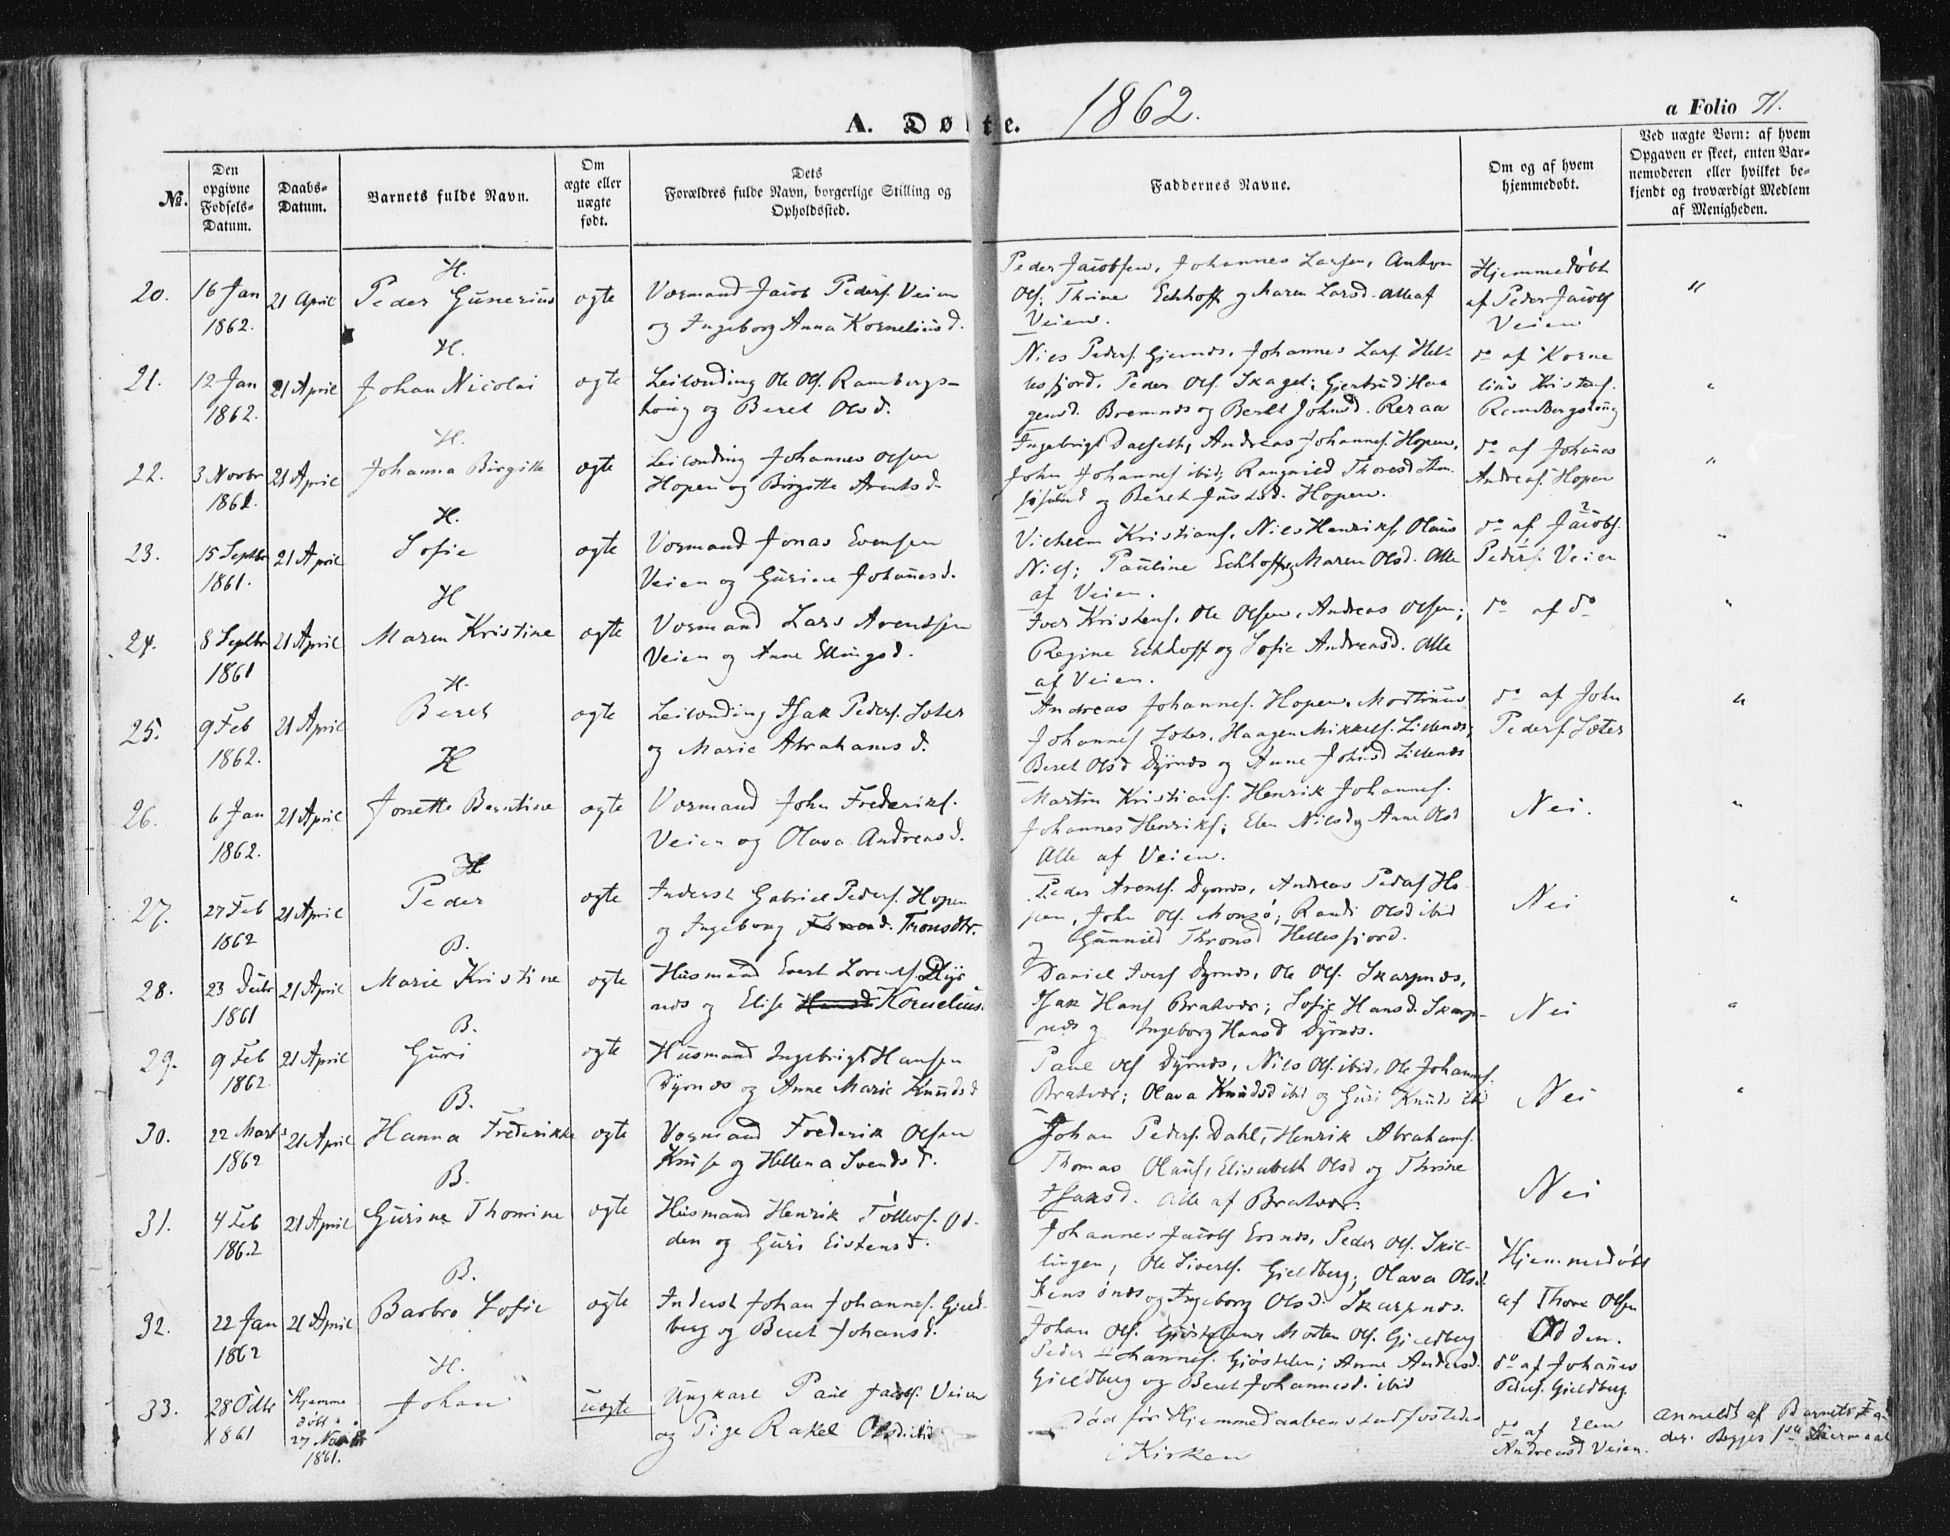 A. Døbte. 1862.
a Folio 71.
No.
Den opgivne Fødsels-Datum.
Daabs-Datum.
Barnets fulde Navn.
Om ægte eller uægte født.
Dets Forældres fulde Navn, borgerlige Stilling og Opholdssted.
Faddernes Navne.
Om og af hvem hjemmedøbt.
Ved uægte Børn: af hvem Opgaven er skeet, enten Barnemoderen eller hvilket bekjendt og troværdigt Medlem af Menigheden.
H.
20. 16 Jan 1862. 21 April Peder Gunerius ægte
Vormand Jacob Peders. Veien
og Ingeborg Anna Korneliusd.
Peder Jacobsen, Johannes Larsen, Anton
Ols. Thrine Eckhoff og Maren Larsd. Alle af
Veien.
Hjemmedøbt
af Peder Jacobs
Veien
"
H.
21. 12 Jan 1862. 21 April Johan Nicolai ægte
Leilænding Ole Ols. Rambergs-
houg og Beret Olsd.
Niels Peders. Gjernæs, Johannes Lars. Hel-
lesfjord, Peder Ols. Skaget; Gjertrud Haa
gensd. Bremnæs og Beret Johnsd. Reraa
do af Korne
lius Kristens.
Rambergshoug
"
H.
22. 3 Novbr 1861. 21 April Johanna Birgitte ægte
Leilænding Johannes Olsen
Hopen og Birgitte Arentsd.
Ingebrigt Dalseth, Andreas Johannes. Hopen,
John Johannes ibid; Rangnild Thoresd
og Beret Justsd. Hopen.
do af Johanes
Andreas. Hopen
"
H.
23. 15 Septbr 1861. 21 April Sofie ægte
Vormand Jonas Evensen
Veien og Guriene Johanesd.
Vilhelm Kristians. Niels Henriks. Olaus
Niels; Pauline Eckhoff og Maren Olsd. Alle
af Veien.
do af Jacob
Peders. Veien
"
H
24. 8 Septbr 1861 21 April Maren Kristine ægte
Vormand Lars Arentsen
Veien og Anne Ellingsd.
Iver Kristens. Ole Olsen, Andreas Olsen;
Regine Eckhoff og Sofie Andreasd. Alle
af Veien.
do af do
"
H.
25. 9 Feb 1862. 21 April Beret ægte
Leilænding Isak Peders. Sæter
og Marie Abrahamsd.
Andreas Johannes. Hopen, Mortinus
Johannes Sæter, Haagen Mikkels. Lillenæs;
Beret Olsd Dyrnæs og Anne Johnsd Lillenæs
do af John
Peders. Sæter
"
H
26. 6 Jan 1862. 21 April Jonette Berntine ægte
Vormand John Frederiks.
Veien og Olava Andreasd.
Martin Kristians. Henrik Johannes.
Johannes Henriks; Elen Nilsd og Anne Olsd
Alle af Veien.
Nei.
"
H
27. 27 Feb 1862 21 April Peder ægte
Inderst Gabriel Peders. Hopen
og Ingeborg Tronsdtr.
Peder Arents. Dyrnæs, Andreas Peders Ho-
pen, John Ols. Monsø; Randi Olsd ibid
og Gunnild Thronsd Hellesfjord.
Nei
"
B.
28. 23 Decbr 1861 21 April Marie Kristine ægte
Husmand Evert Lorents. Dyr
næs og Elise Kornelius.
Daniel Ivers Dyrnæs, Ole Ols. Skarpnæs,
Isak Hans Bratvær; Sofie Hansd. Skarp-
næs og Ingeborg Hansd Dyrnæs.
Nei
"
B.
29. 9 Feb 1862 21 April Guri ægte
Husmand Ingebrigt Hansen
Dyrnæs og Anne Marie Knudsd
Paul Ols Dyrnæs, Niels Ols. ibid, Ole Johannes.
Bratvær; Olava Knudsd ibid og Guri Knuds ibd
Nei
"
B.
30. 22 Marts 1862 21 April Hanna Frederikke ægte
Vormand Frederik Olsen
Knise og Hellena Svendsd.
Johan Peders. Dahl, Henrik Abrahams.
Thomas Olaus, Elisabeth Olsd og Thrine
Isaksd. Alle af Bratvær.
Nei
B.
31. 4 Feb 1862 21 April Gurine Thomine ægte
Husmand Henrik Tollevs. Od-
den og Guri Eistensd.
Johannes Jacobs Ersnæs, Peder Ols. Skil-
lingen, Ole Sivers. Gieldberg; Olava Olsd.
og Ingeborg Olsd. Skarpnæs.
Hjemmedøbt
af Thore Olsen
Odden.
B.
32. 22 Jan 1862 21 April Barbro Sofie ægte
Inderst Johan Johannes. Gield-
berg og Beret Johansd.
Johan Ols. Giøstelen Morten Ols. Gieldberg
Peder Johannes. Giøstelen; Anne Andersd.
Gieldberg og Beret Johannesd. ibid
do af Johanes
Peders. Gieldberg
H.
33. 28 Octbr 1861 Hjemme døbt 27 Novbr 1861. Johan uægte
Ungkarl Paul Jacobs. Veien
og Pige Rakel Olsd ibid
død før Hjemmedaabens stadfæstedes
i Kirken
do af Elen
Andreasd Veien.
Anmeldt af Barnets Fa
der. Begges 1ste Leiermaal